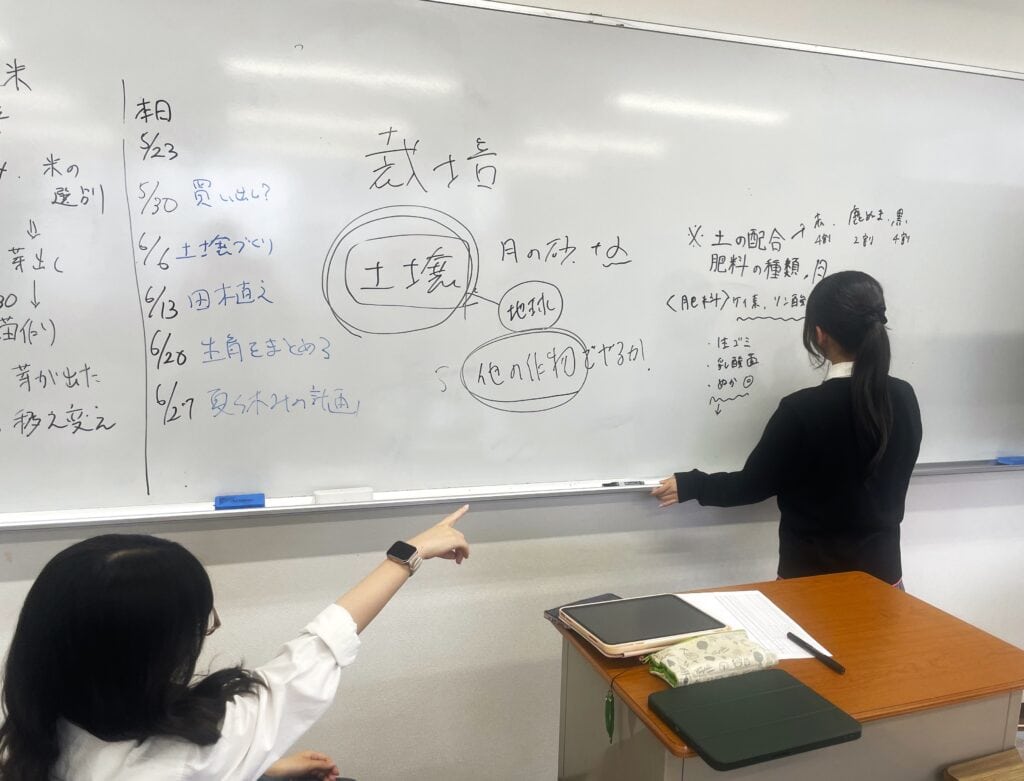 米
米の
選別
⇓
芽出し
↓
苗作り
芽が出た
移え変え
本日
5/23
5/30 買い出し?
6/6 土壌づくり
6/13 田植え
6/20
6/27 夏休みの計画
栽培
土壌
月の砂
地球
他の作物でやるか.
※ 土の配合 → 赤, 鹿ぬま, 黒
4割 2割 4割
肥料の種類.
〈肥料〉ケイ素, リン酸
・生ゴミ
・乳酸菌
・ぬか
↓